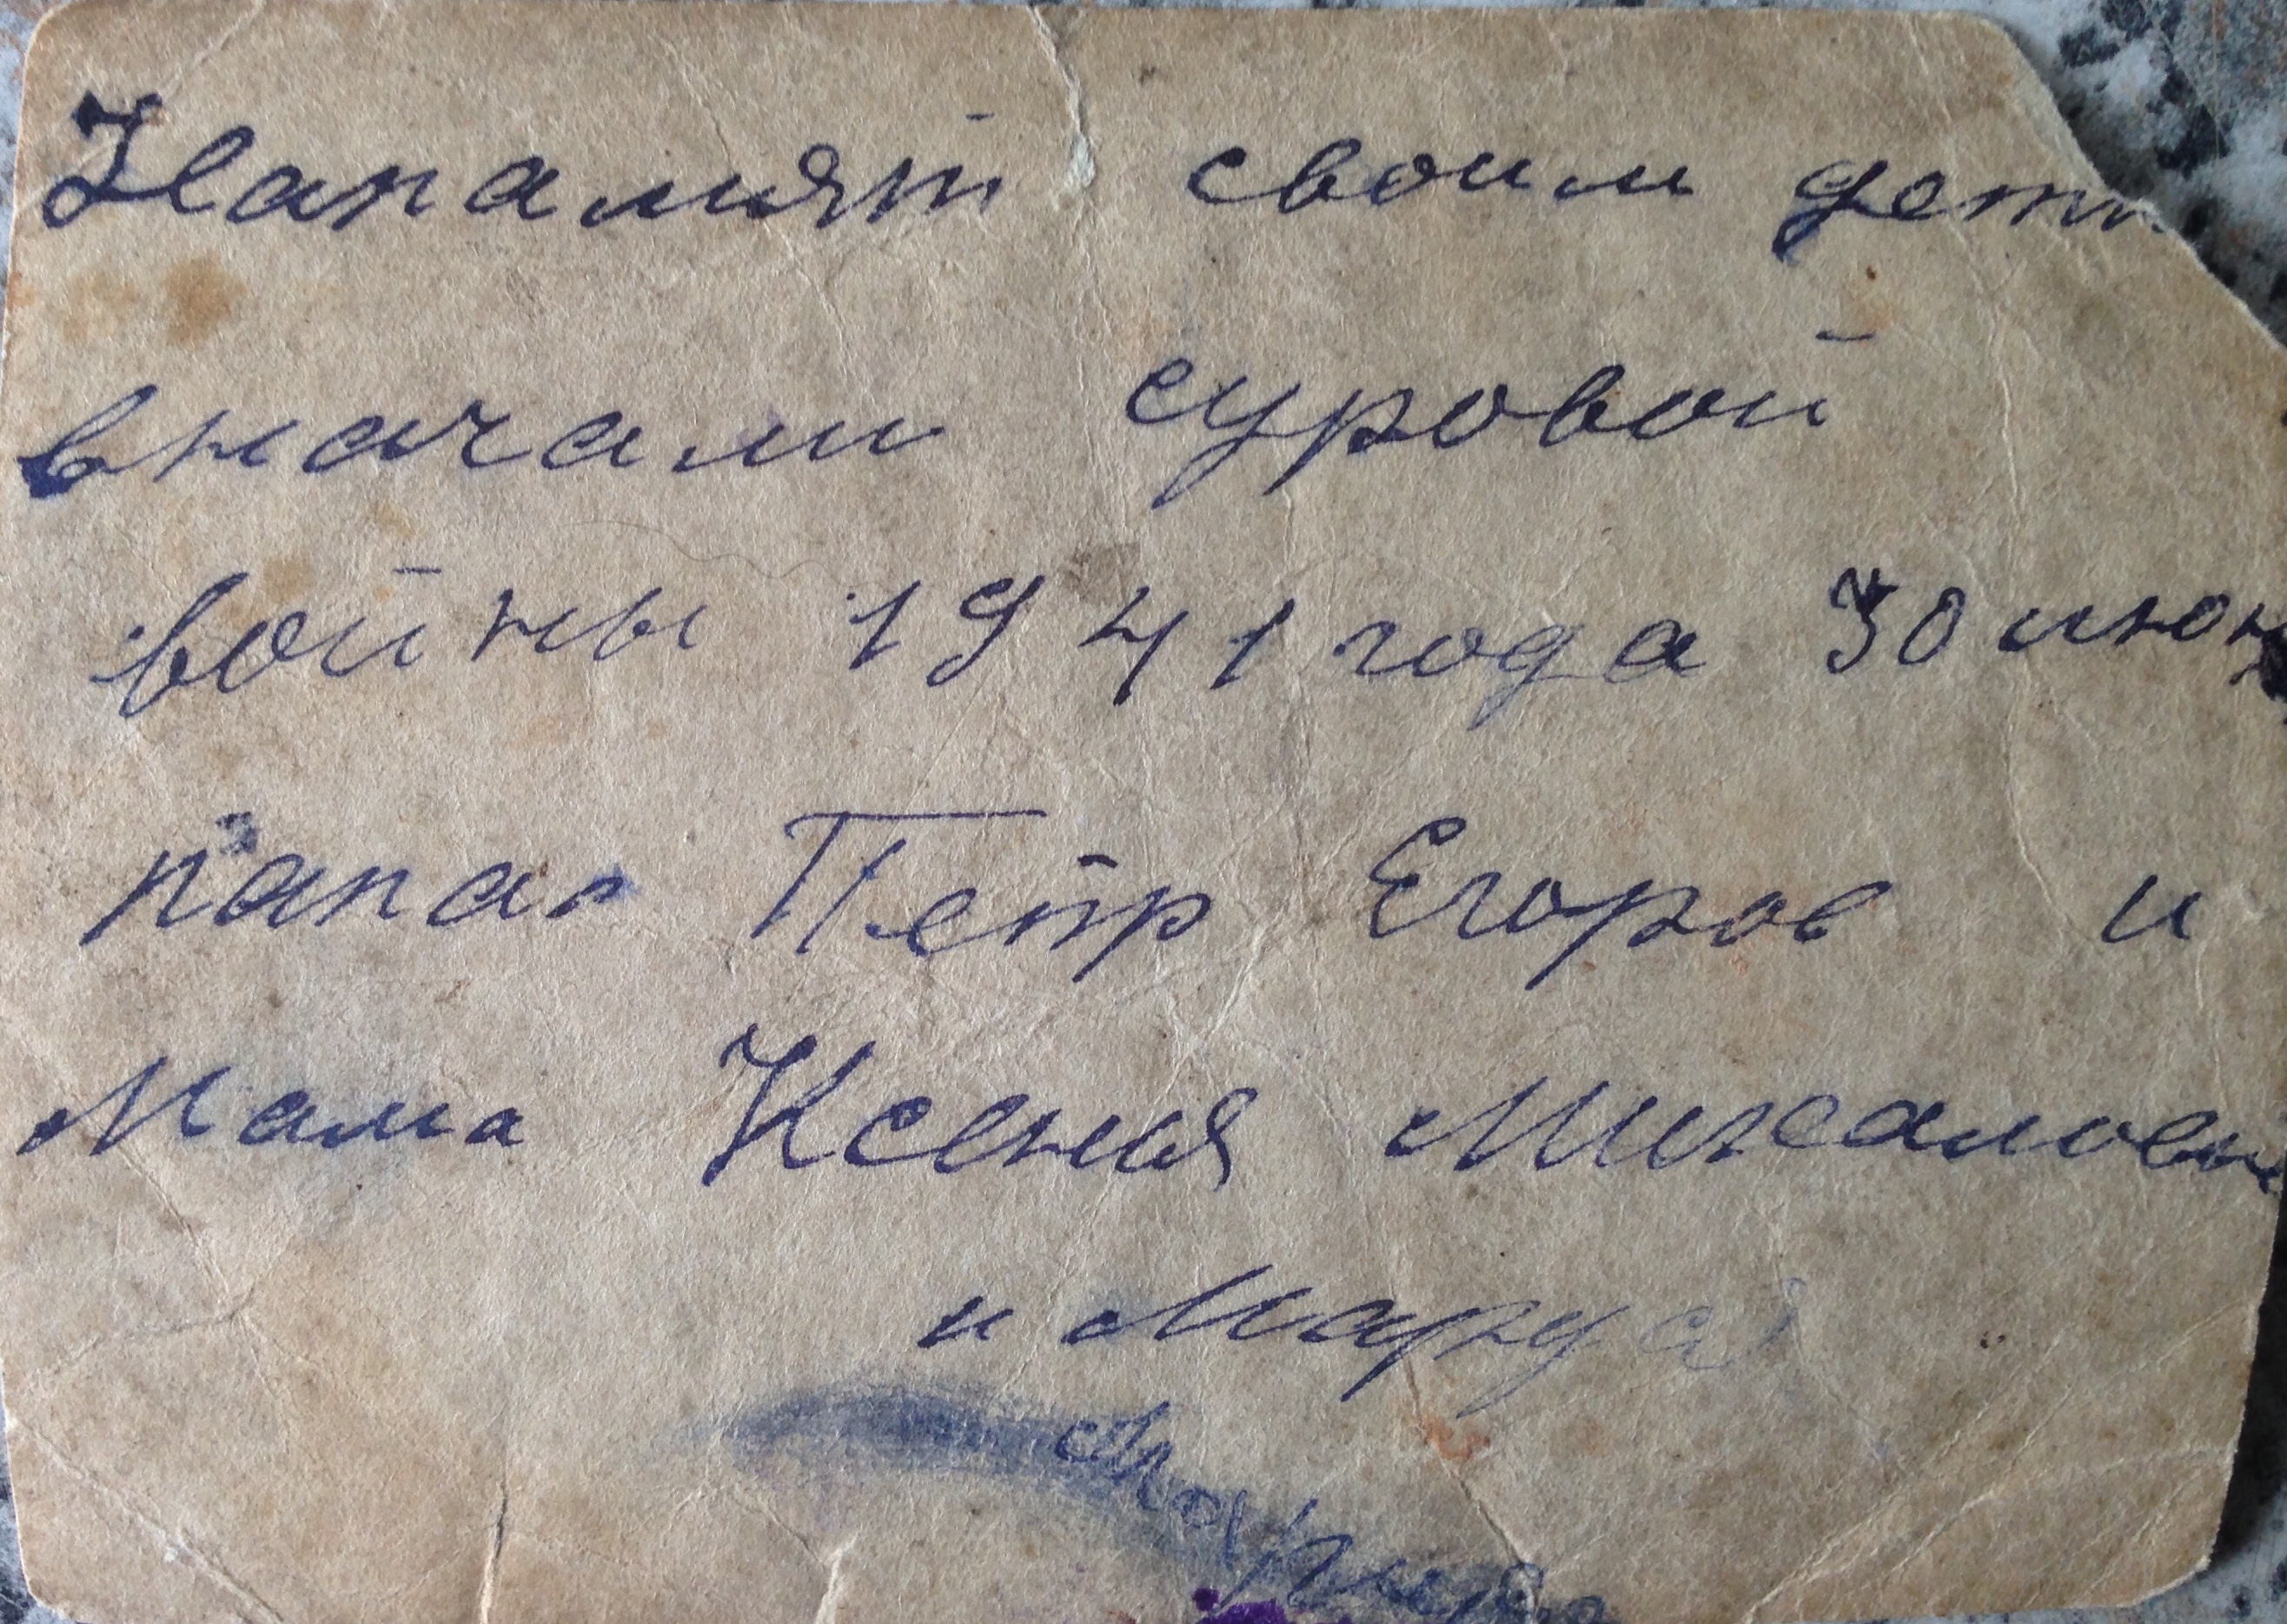 Напамят своим дет
вначали суровой
войны 1941 года 30 июн
папа Петр Егоров и
Мама Ксения Михаловн
и Маруся